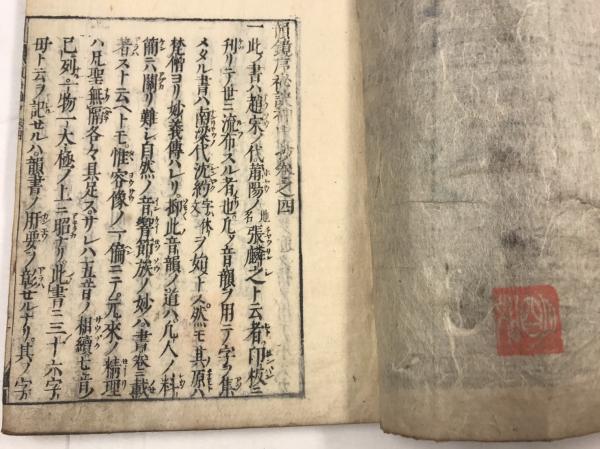 韻鏡序秘訣袖中抄巻之四
一此ノ書ハ趙宋ノ代莆陽ノ地名張麟之ト云者印板ニ
刊リテ世ニ流布スル者也凡ソ音韻ヲ用テ字ヲ集
メタル書ハ南梁代沈約字休文ヲ始トス然モ其原ハ
梵僧ヨリ妙義傳ハレリ抑此音韻ノ道ハ凡人ノ料
簡ニ關リ難シ自然ノ音響節族ノ妙ハ書巻ニ載
者ストモ云ヘトモ惟容像ノ一偏ニテ元來ノ精理
ハ凡聖無隔各々具足スサレハ五音ノ相續七音ノ
已列一物一大極ノ上ニ昭ナリ此書ニ三十六字
母ト云ヲ記セルハ韻書ノ用要ヲ彰セルナリ其ノ字